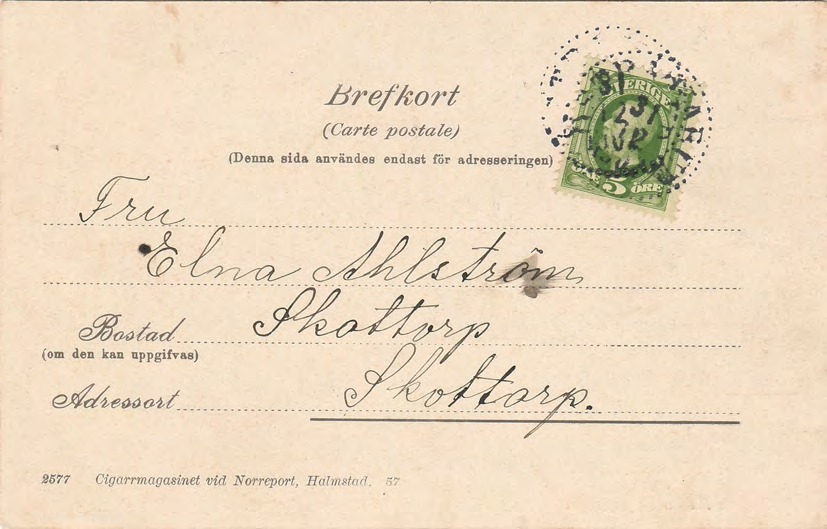 Brefkort
(Carte postale)
(Denna sida användes endast för adresseringen)
SVERIGE
5 ÖRE
Fru
Elna Ahlström
Bostad Skottorp
(om den kan uppgifvas)
Adressort Skottorp.
2577 Cigarrmagasinet vid Norreport, Halmstad. 57